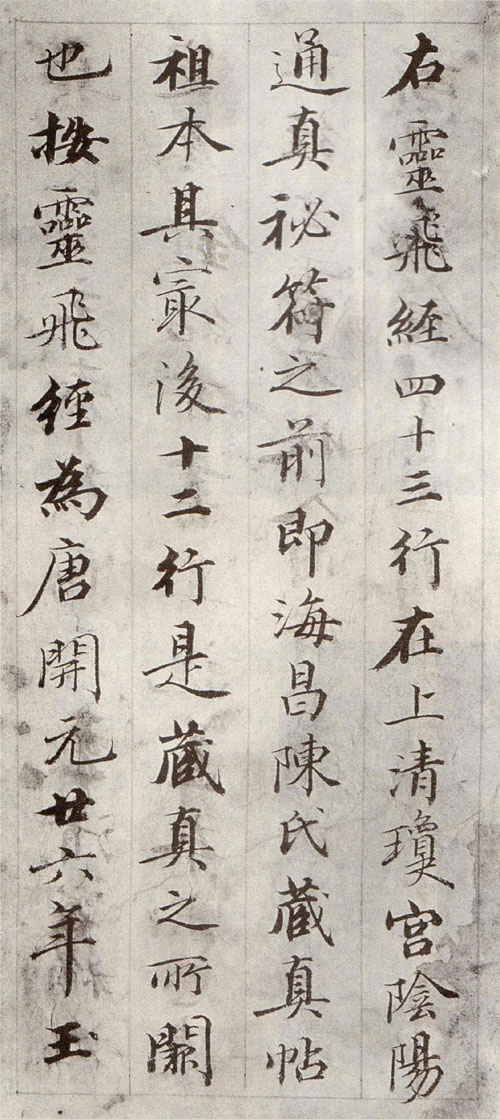 右靈飛經四十三行在上清瓊宮陰陽
通真祕符之前即海昌陳氏蔵真帖
祖本具家後十二行是蔵真之所闕
也按靈飛經為唐開元廿六年玉